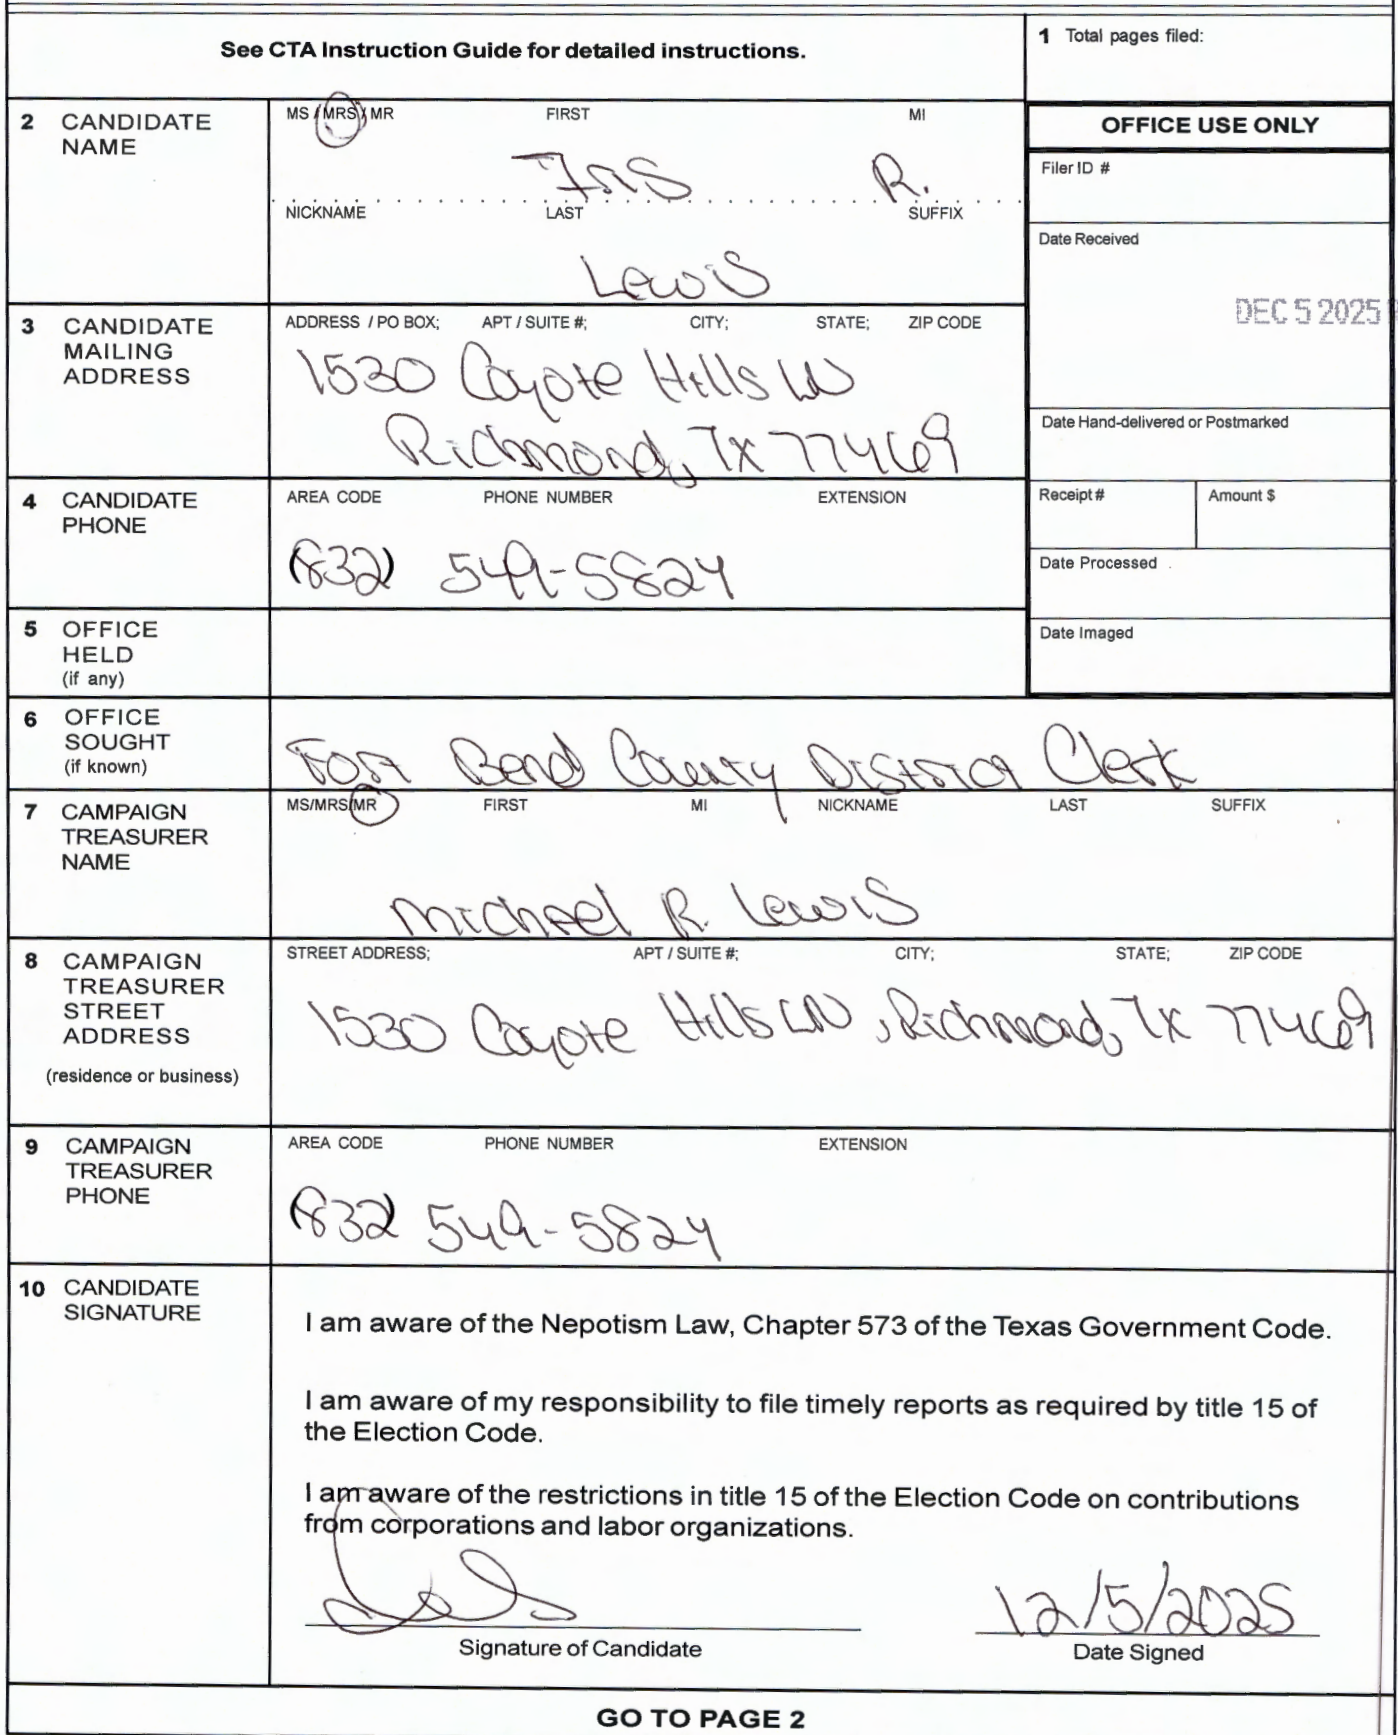 See CTA Instruction Guide for detailed instructions.
1 Total pages filed:
2 CANDIDATE NAME
MS / MRS / MR FIRST MI
R.
NICKNAME LAST SUFFIX
Lewis
OFFICE USE ONLY
Filer ID #
Date Received
DEC 5 2025
Date Hand-delivered or Postmarked
Receipt # Amount $
Date Processed
Date Imaged
3 CANDIDATE MAILING ADDRESS
ADDRESS / PO BOX; APT / SUITE #; CITY; STATE; ZIP CODE
1530 Coyote Hills LN
Richmond, Tx 77469
4 CANDIDATE PHONE
AREA CODE PHONE NUMBER EXTENSION
(832) 549-5824
5 OFFICE HELD (if any)
6 OFFICE SOUGHT (if known)
Fort Bend County District Clerk
7 CAMPAIGN TREASURER NAME
MS/MRS/MR FIRST MI NICKNAME LAST SUFFIX
Michael R. Lewis
8 CAMPAIGN TREASURER STREET ADDRESS (residence or business)
STREET ADDRESS; APT / SUITE #; CITY; STATE; ZIP CODE
1530 Coyote Hills LN, Richmond, Tx 77469
9 CAMPAIGN TREASURER PHONE
AREA CODE PHONE NUMBER EXTENSION
(832) 549-5824
10 CANDIDATE SIGNATURE
I am aware of the Nepotism Law, Chapter 573 of the Texas Government Code.
I am aware of my responsibility to file timely reports as required by title 15 of
the Election Code.
I am aware of the restrictions in title 15 of the Election Code on contributions
from corporations and labor organizations.
12/5/2025
Signature of Candidate Date Signed
GO TO PAGE 2